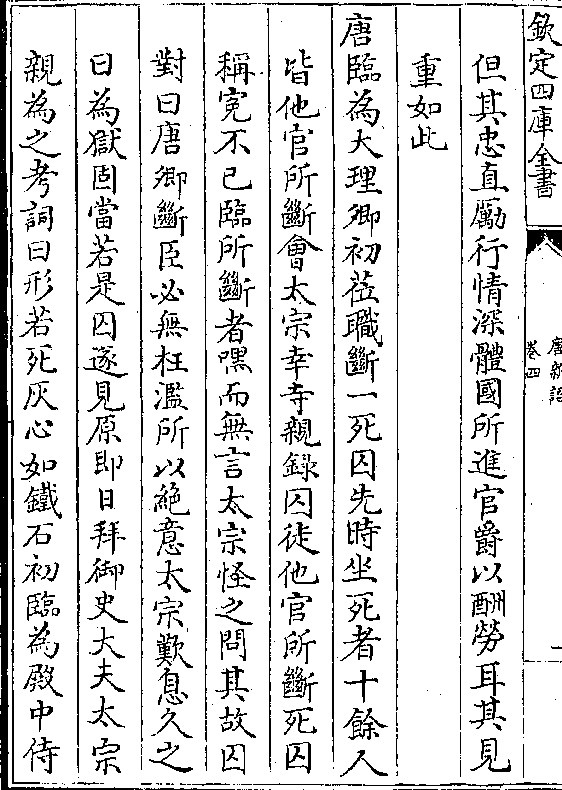 欽定四庫全書
唐新語
卷四
但其忠直勵行情深體國所進官爵以酬勞耳其見
重如此
唐臨為大理卿初莅職斷一死囚先時坐死者十餘人
皆他官所斷會太宗幸寺親錄囚徒他官所斷死囚
稱寃不已臨所斷者嘿而無言太宗怪之問其故囚
對曰唐卿斷臣必無枉濫所以絕意太宗歎息久之
曰為獄固當若是囚遂見原即日拜御史大夫太宗
親為之考詞曰形若死灰心如鐵石初臨為殿中侍